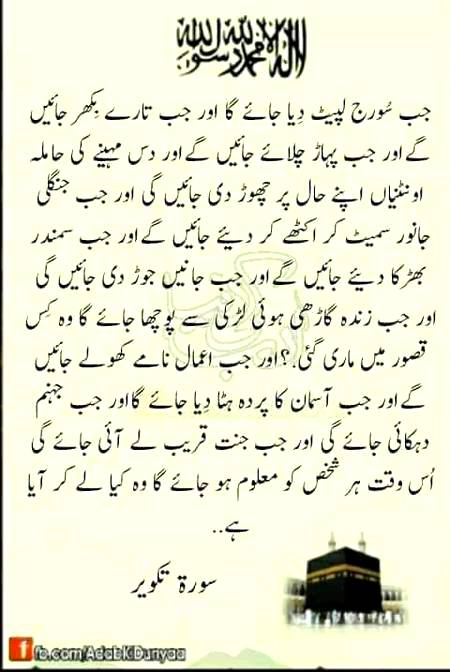 لا اله الا الله محمد رسول الله
جب سُورج لپیٹ دِیا جائے گا اور جب تارے بِکھر جائیں
گے اور جب پہاڑ چلائے جائیں گے اور دس مہینے کی حاملہ
اونٹنیاں اپنے حال پر چھوڑ دی جائیں گی اور جب جنگلی
جانور سمیٹ کر اکٹھے کر دیئے جائیں گے اور جب سمندر
بھڑکا دیئے جائیں گے اور جب جانیں جوڑ دی جائیں گی
اور جب زندہ گاڑھی ہوئی لڑکی سے پوچھا جائے گا وہ کِس
قصور میں ماری گئی.؟ اور جب اعمال نامے کھولے جائیں
گے اور جب آسمان کا پردہ ہٹا دِیا جائے گا اور جب جہنم
دہکائی جائے گی اور جب جنت قریب لے آئی جائے گی
اُس وقت ہر شخص کو معلوم ہو جائے گا وہ کیا لے کر آیا
ہے..
سورۃ تکویر
f fb.com/AdabKiDunyaa